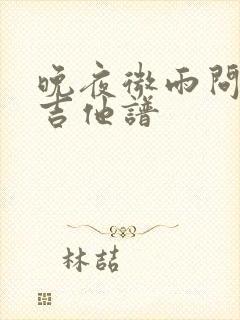 晚夜微雨問
吉他譜
林喆